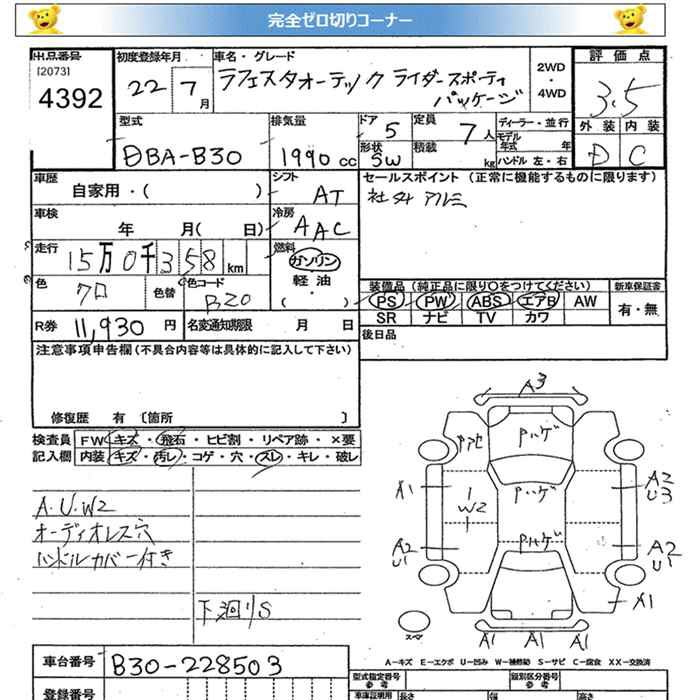 完全ゼロ切りコーナー
出品番号 初度登録年月 車名・グレード 2WD・4WD 評価点
[2073]
4392 22 7月 ラフェスタオーテック ライダースポーティ 3.5
パッケージ
型式 排気量 ドア 5 定員 7人 ディーラー・並行 外装 内装
モデル年式 年
DBA-B30 1990 cc 形状 SW 積載 kg ハンドル 左・右 D C
車歴 シフト セールスポイント (正常に機能するものに限ります)
自家用・( ) AT 社外 アルミ
車検 冷房
年 月( 日) AAC
走行 燃料
15万0千358km ガソリン
軽油
・( )
色 クロ 色替 色コード B20
装備品 (純正品に限り〇をつけてください) 新車保証書
PS PW ABS エアB AW 有・無
SR ナビ TV カワ
R券 11,930 円 名変通知期限 月 日 後日品
注意事項申告欄(不具合内容等は具体的に記入して下さい)
修復歴 有 〔箇所 〕
検査員 FW キズ・飛石・ヒビ割・リペア跡・×要
記入欄 内装 キズ・汚レ・コゲ・穴・スレ・キレ・破レ
A.U.W2
オーディオレス穴
ハンドルカバー付き
下廻りS
A3
Pハゲ
A1 W2 Pハゲ A2
U3
A2 Pハゲ A2
U1 U1
A1
スペア A1 A1 A1
A−キズ E−エクボ U−凹み W−補修跡 S−サビ C−腐食 XX−交換済
車台番号 B30-228503
登録番号
型式指定番号 類別区分番号
参考 参考
車庫証明用 長さ 幅 高さ